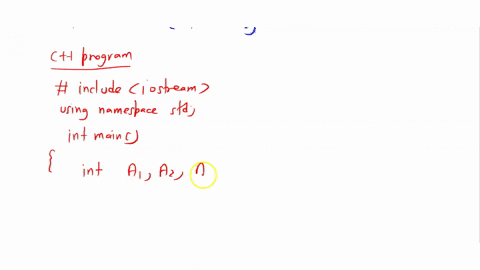 C++ program
# include <iostream>
using namespace std,
int main()
{
int A1, A2, A